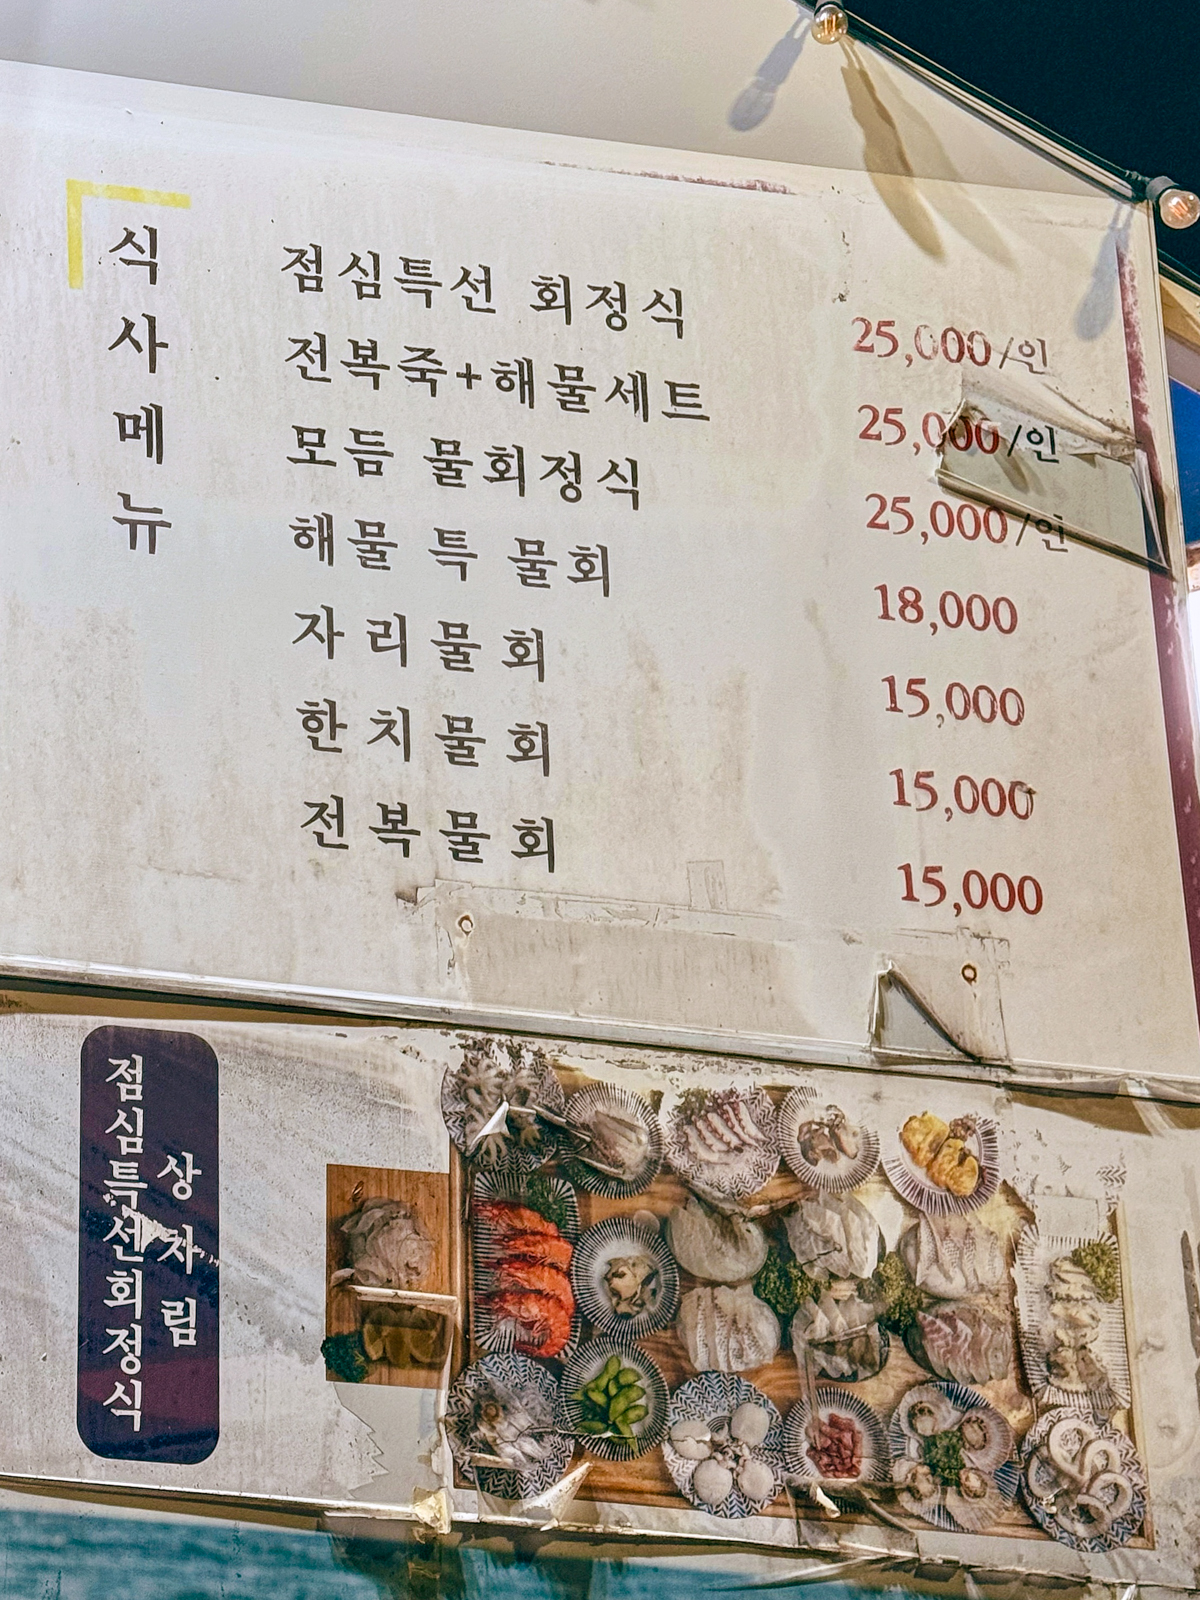 식사메뉴
점심특선 회정식 25,000/인
전복죽+해물세트 25,000/인
모듬 물회정식 25,000/인
해물 특 물회 18,000
자리물회 15,000
한치물회 15,000
전복물회 15,000
점심특선회정식
상차림